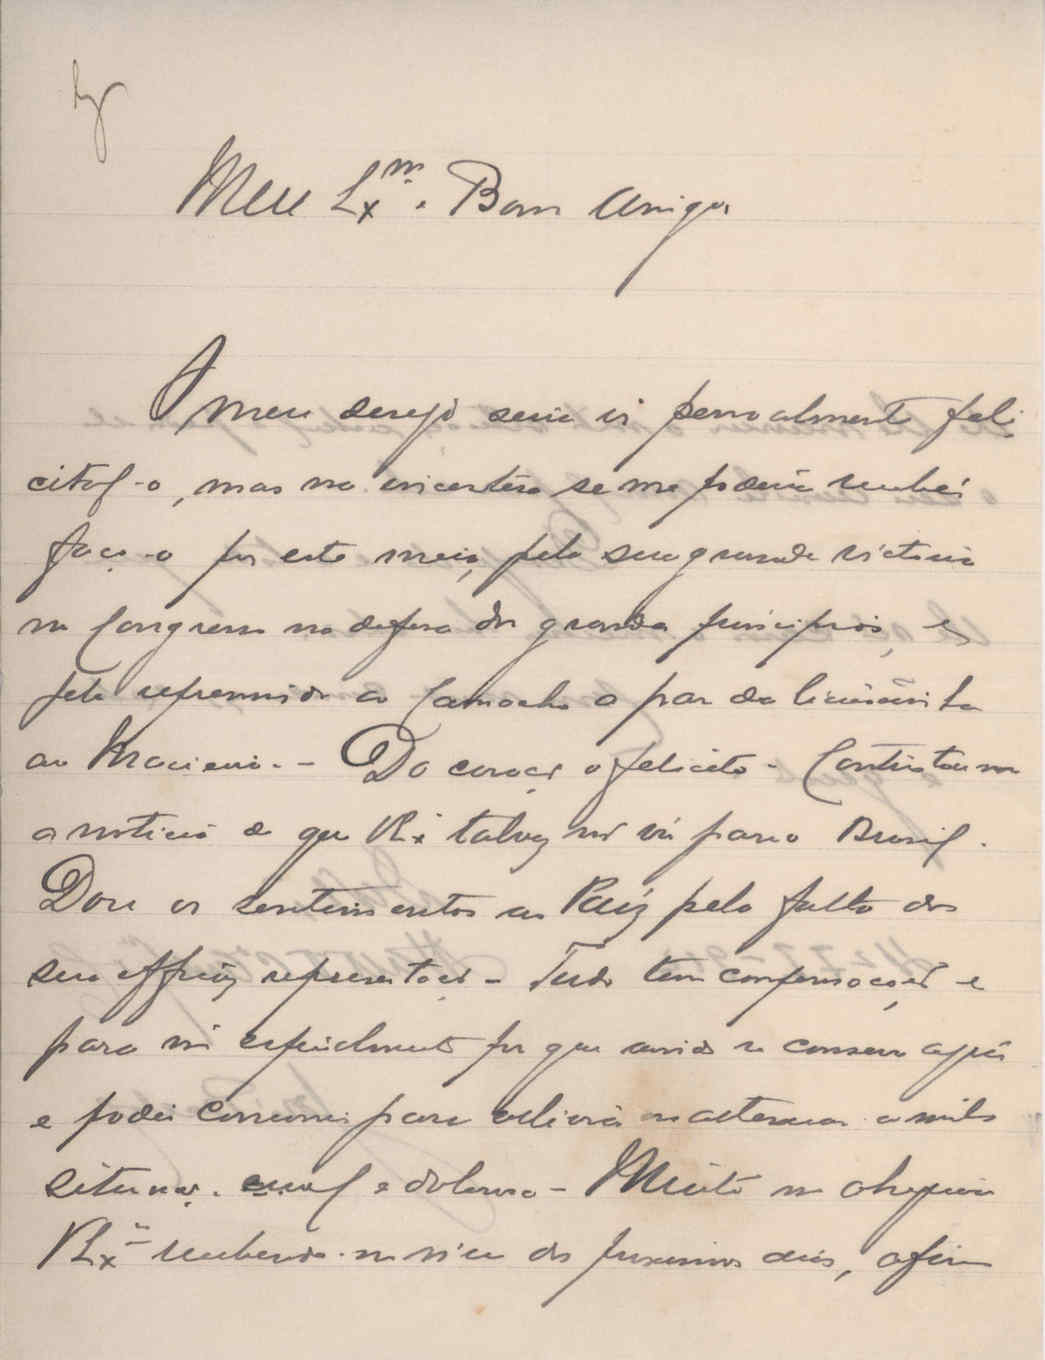 Meu Ex.mo Bom Amigo,
O meu desejo seria ir pessoalmente feli
cital-o, mas na incerteza se me poderia receber
faço-o por este meio, pela sua grande victoria
no Congresso na defesa dos grandes principios, e
pela reprimenda ao Camacho a par da
ao Macieira. - Do coração o felicito - Contristou-me
a noticia de que V. Ex. talvez não vá para o Brasil.
Dou os sentimentos ao Paiz pela falta da
sua representação - Tudo tem compensações e
para mim especialmente por que ainda o conservo aqui
e poderá concorrer para alliviar ou attenuar a minha
situação cruel e dolorosa - Muito me obsequeia
V. Ex.a recebendo-me n'um dos proximos dias, afim